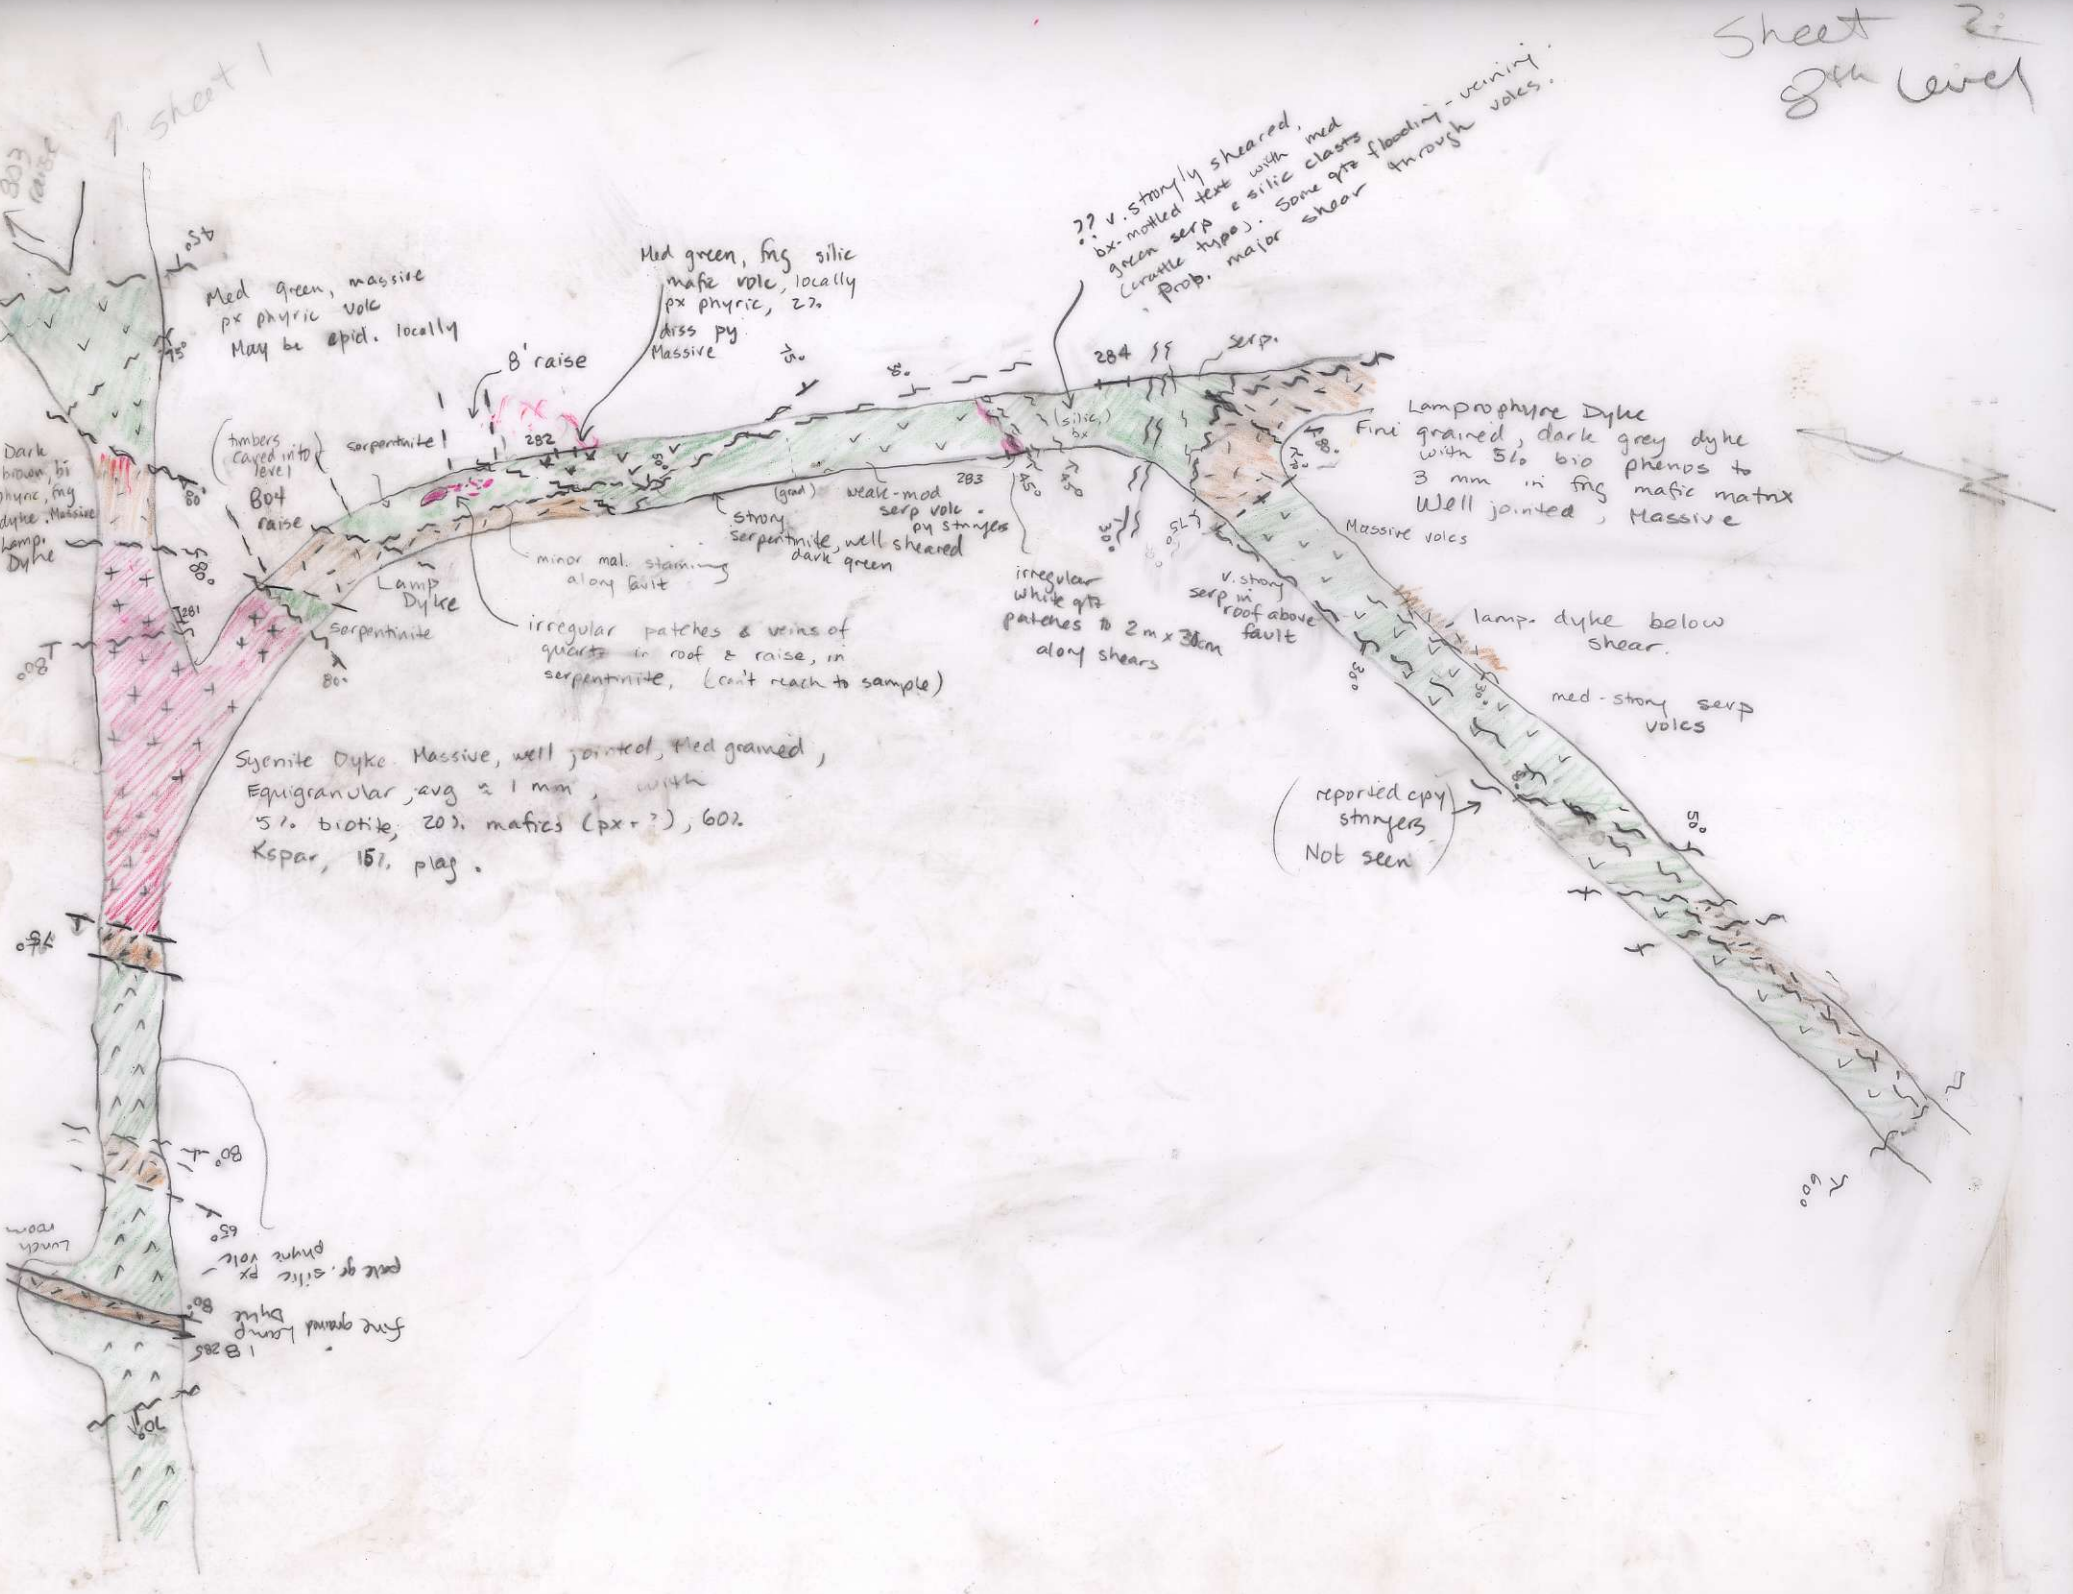 Sheet 2
8th Level
↑ Sheet 1
803
raise
45°
Med green, massive
px phyric volc
May be epid. locally
75°
Med green, fng silic
mafic volc, locally
px phyric, 2%
diss py.
Massive
8' raise
?? v. strongly sheared,
bx-mottled text with med
green serp & silic clasts
(crackle type). Some qtz flooding - veining
prob. major shear through volcs.
284
serp.
(silic.)
bx
Lamprophyre Dyke
Fine grained, dark grey dyke
with 5% bio phenos to
3 mm in fng mafic matrix
Well jointed, Massive
Dark
brown, bi
phyric, fng
dyke. Massive
Lamp.
Dyke
80°
80°
(timbers
caved into
level)
804
raise
serpentinite
282
283
(grad)
weak-mod
serp volc.
py stringers
strong
serpentinite, well sheared
dark green
minor mal. staining
along fault
Lamp
Dyke
serpentinite
80°
281
80°
irregular patches & veins of
quartz in roof & raise, in
serpentinite, (can't reach to sample)
45°
45°
30°
irregular
white qtz
patches to 2 m x 30cm
along shears
v. strong
serp in
roof above
fault
Massive volcs
lamp. dyke below
shear.
med-strong serp
volcs
30°
30°
Syenite Dyke. Massive, well jointed, Med grained,
Equigranular, avg ≈ 1 mm, with
5% biotite, 20% mafics (px + ?), 60%
Kspar, 15% plag.
(reported cpy
stringers
Not seen)
50°
60°
75°
80°
65°
Lunch
room
pale gr. silic px
phyric volc
80°
fine grained Lamp
Dyke
285
70°